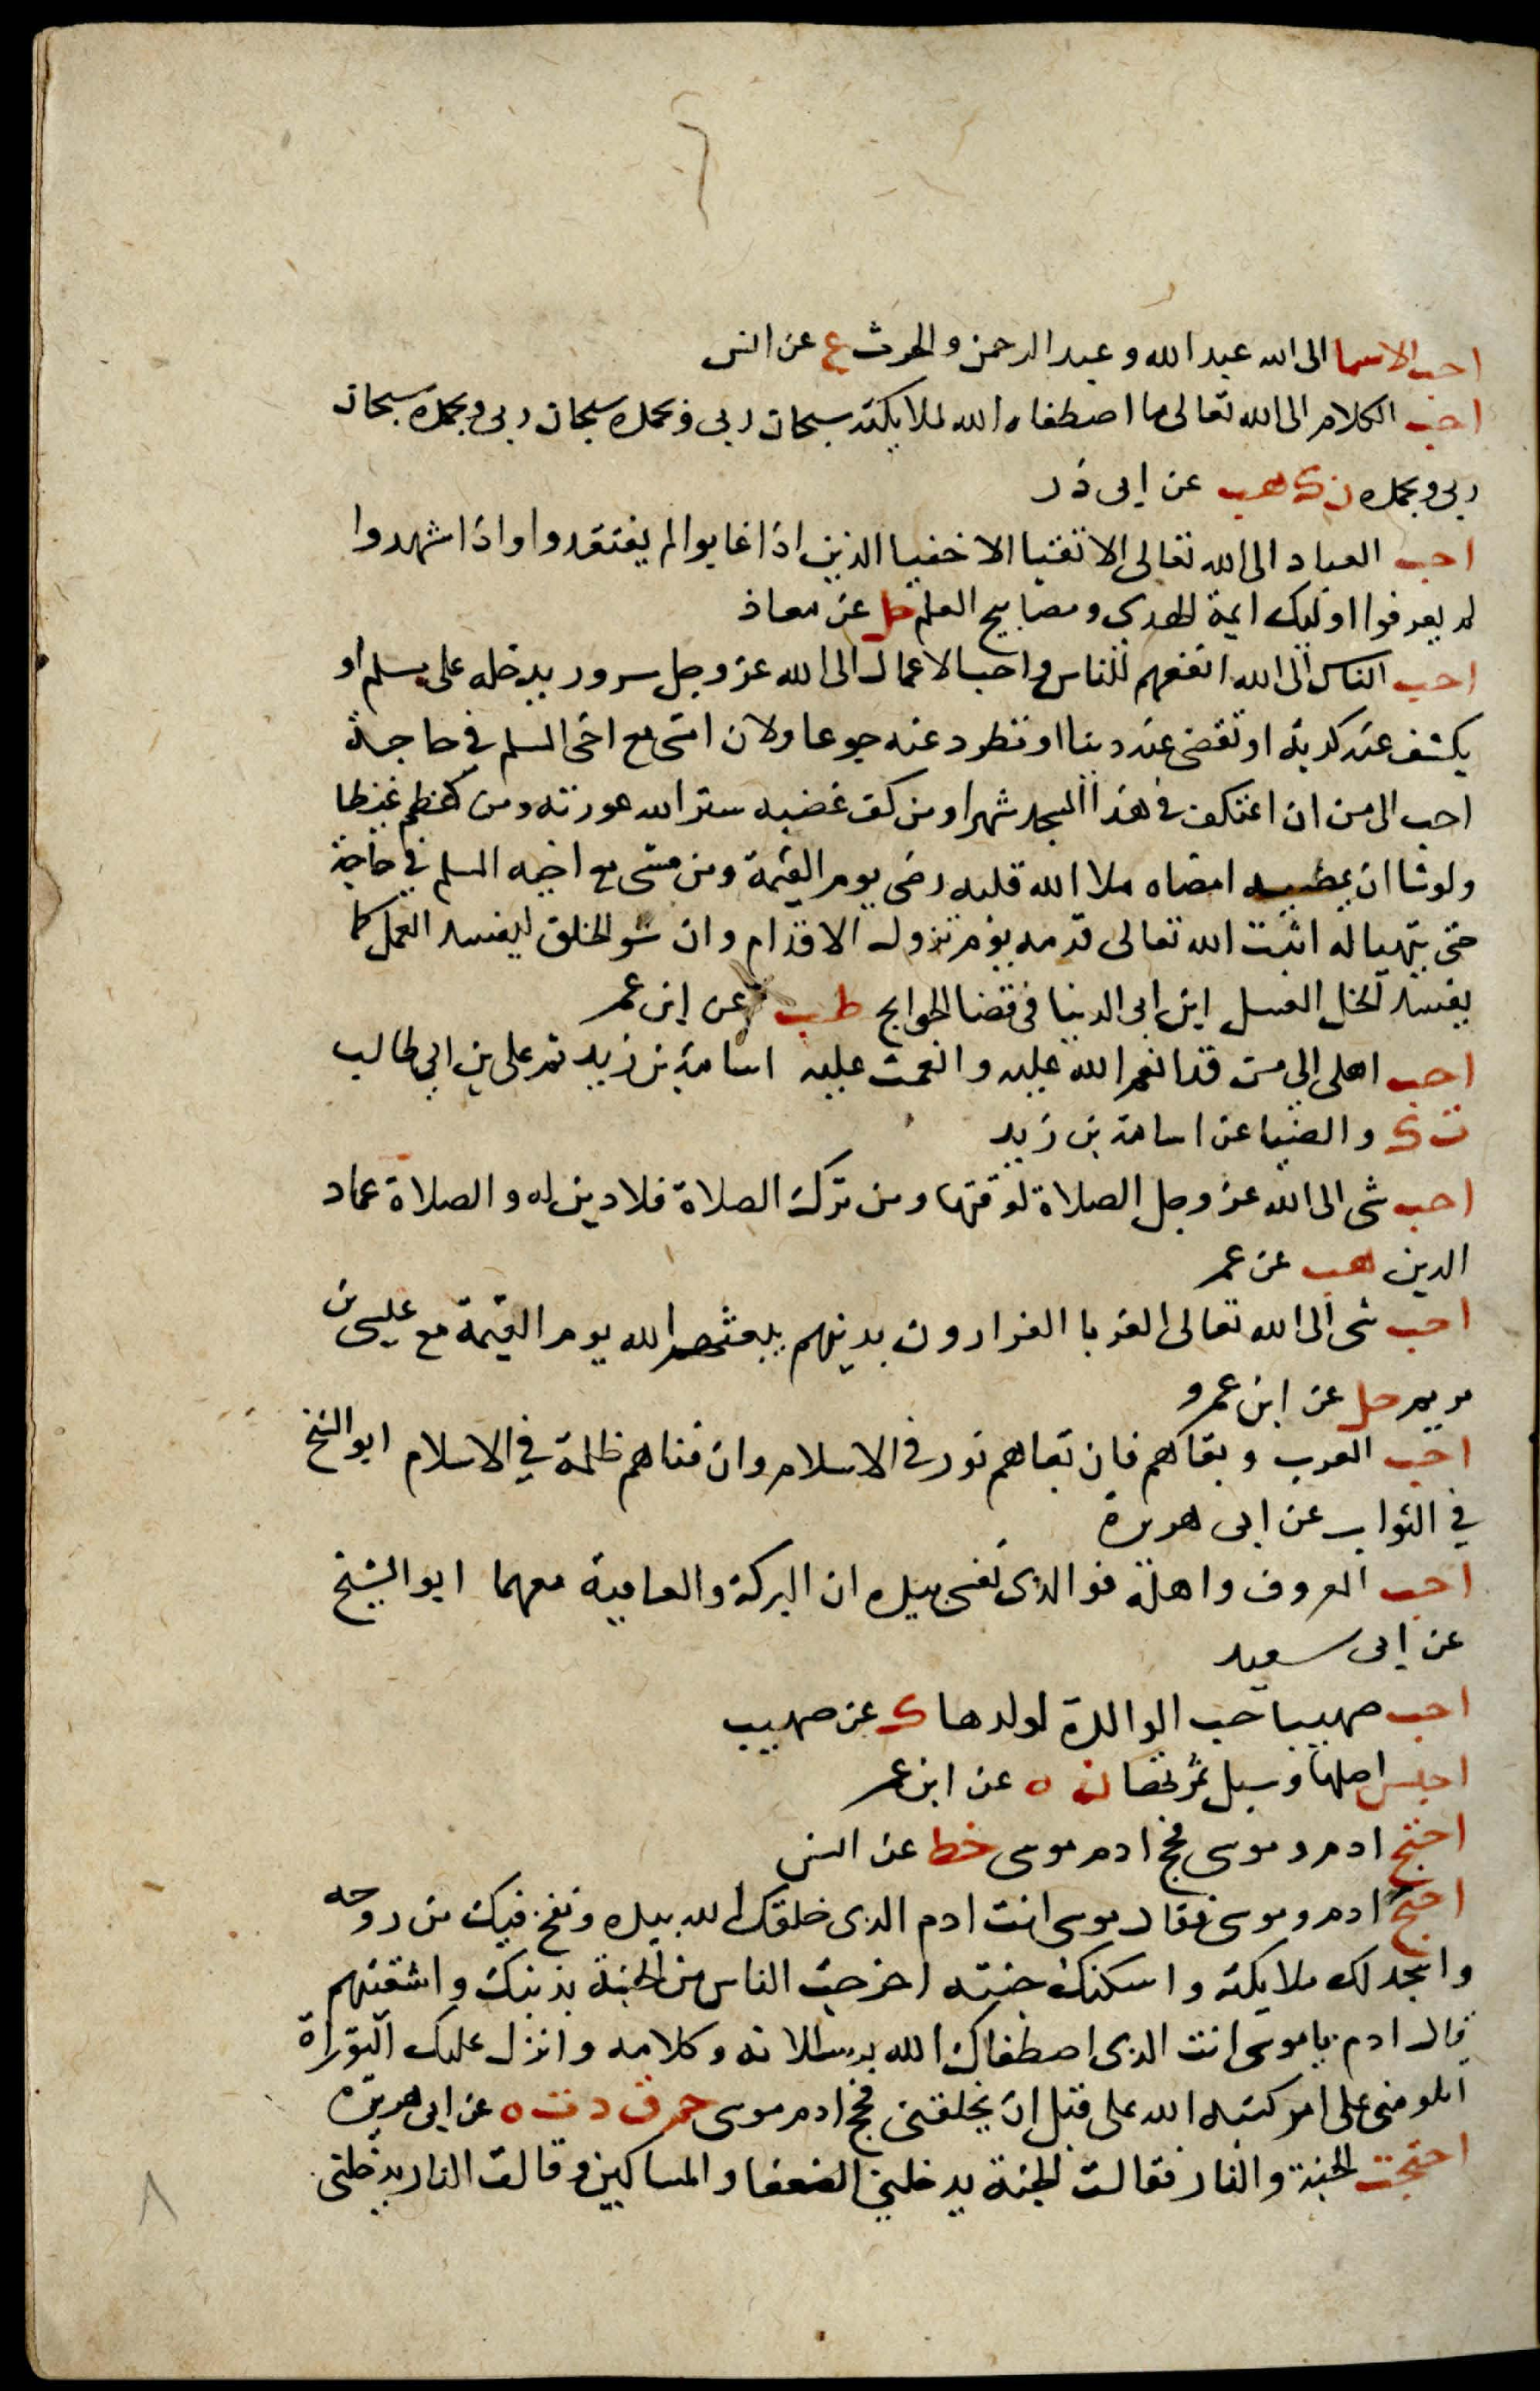 احب الاسما الى الله عبد الله و عبد الرحمن و الحرث ع عن انس
احب الكلام الى الله تعالى ما اصطفاه الله لملايكته سبحان ربى و بحمده سبحان ربى و بحمده سبحان
ربى و بحمده ت ك هب عن ابى ذر
احب العباد الى الله تعالى الاتقيا الاخفيا الذين اذا غابوا لم يفتقدوا واذا شهدوا
لم يعرفوا اوليك ايمة الهدى و مصابيح العلم حل عن معاذ
احب الناس الى الله انفعهم للناس و احب الاعمال الى الله عز وجل سرور يدخله على مسلم او
يكشف عنه كربة او تقضى عنه دينا او تطرد عنه جوعا ولان امشى مع اخى المسلم في حاجة
احب الى من ان اعتكف فى هذا المسجد شهرا ومن كف غضبه ستر الله عورته ومن كظم غيظا
ولو شا ان يمضيه امضاه ملا الله قلبه رضى يوم القيمة ومن مشى مع اخيه المسلم في حاجة
حتى يتهيا له اثبت الله تعالى قدمه يوم تزول الاقدام وان سو الخلق ليفسد العمل كما
يفسد الخل العسل ابن ابى الدنيا فى قضا الحوايج طب عن ابن عمر
احب اهلى الى من قد انعم الله عليه و انعمت عليه اسامة بن زيد ثم على بن ابى طالب
ت ك و الضيا عن اسامة بن زيد
احب شى الى الله عز وجل الصلاة لوقتها ومن ترك الصلاة فلا دين له و الصلاة عماد
الدين هب عن عمر
احب شى الى الله تعالى الغربا الفرارون بدينهم يبعثهم الله يوم القيمة مع عيسى بن
مريم حل عن ابن عمرو
احب العرب و بقاهم فان بقاهم نور فى الاسلام وان فناهم ظلمة في الاسلام ابو الشيخ
في الثواب عن ابى هريرة
احب المعروف و اهله فو الذى نفسى بيده ان البركة و العافية معهما ابو الشيخ
عن ابى سعيد
احب صهيبا حب الوالدة لولدها ك عن صهيب
احبس اصلها و سبل ثمرتها ن ه عن ابن عمر
احتج ادم و موسى فحج ادم موسى خط عن انس
احتج ادم و موسى فقال موسى انت ادم الذى خلقك الله بيده و نفخ فيك من روحه
و اسجد لك ملايكته و اسكنك جنته اخرجت الناس من الجنة بذنبك و اشقيتهم
قال ادم يا موسى انت الذى اصطفاك الله برسالاته و كلامه و انزل عليك التوراة
اتلومنى على امر كتبه الله على قبل ان يخلقنى فحج ادم موسى حم ق د ت ه عن ابى هريرة
احتجت الجنة و النار فقالت الجنة يدخلنى الضعفا و المساكين و قالت النار يدخلنى
٨